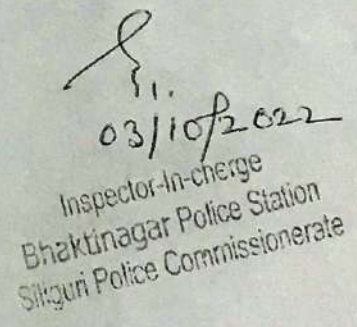 03/10/2022
Inspector-In-cherge
Bhaktinagar Police Station
Siliguri Police Commissionerate